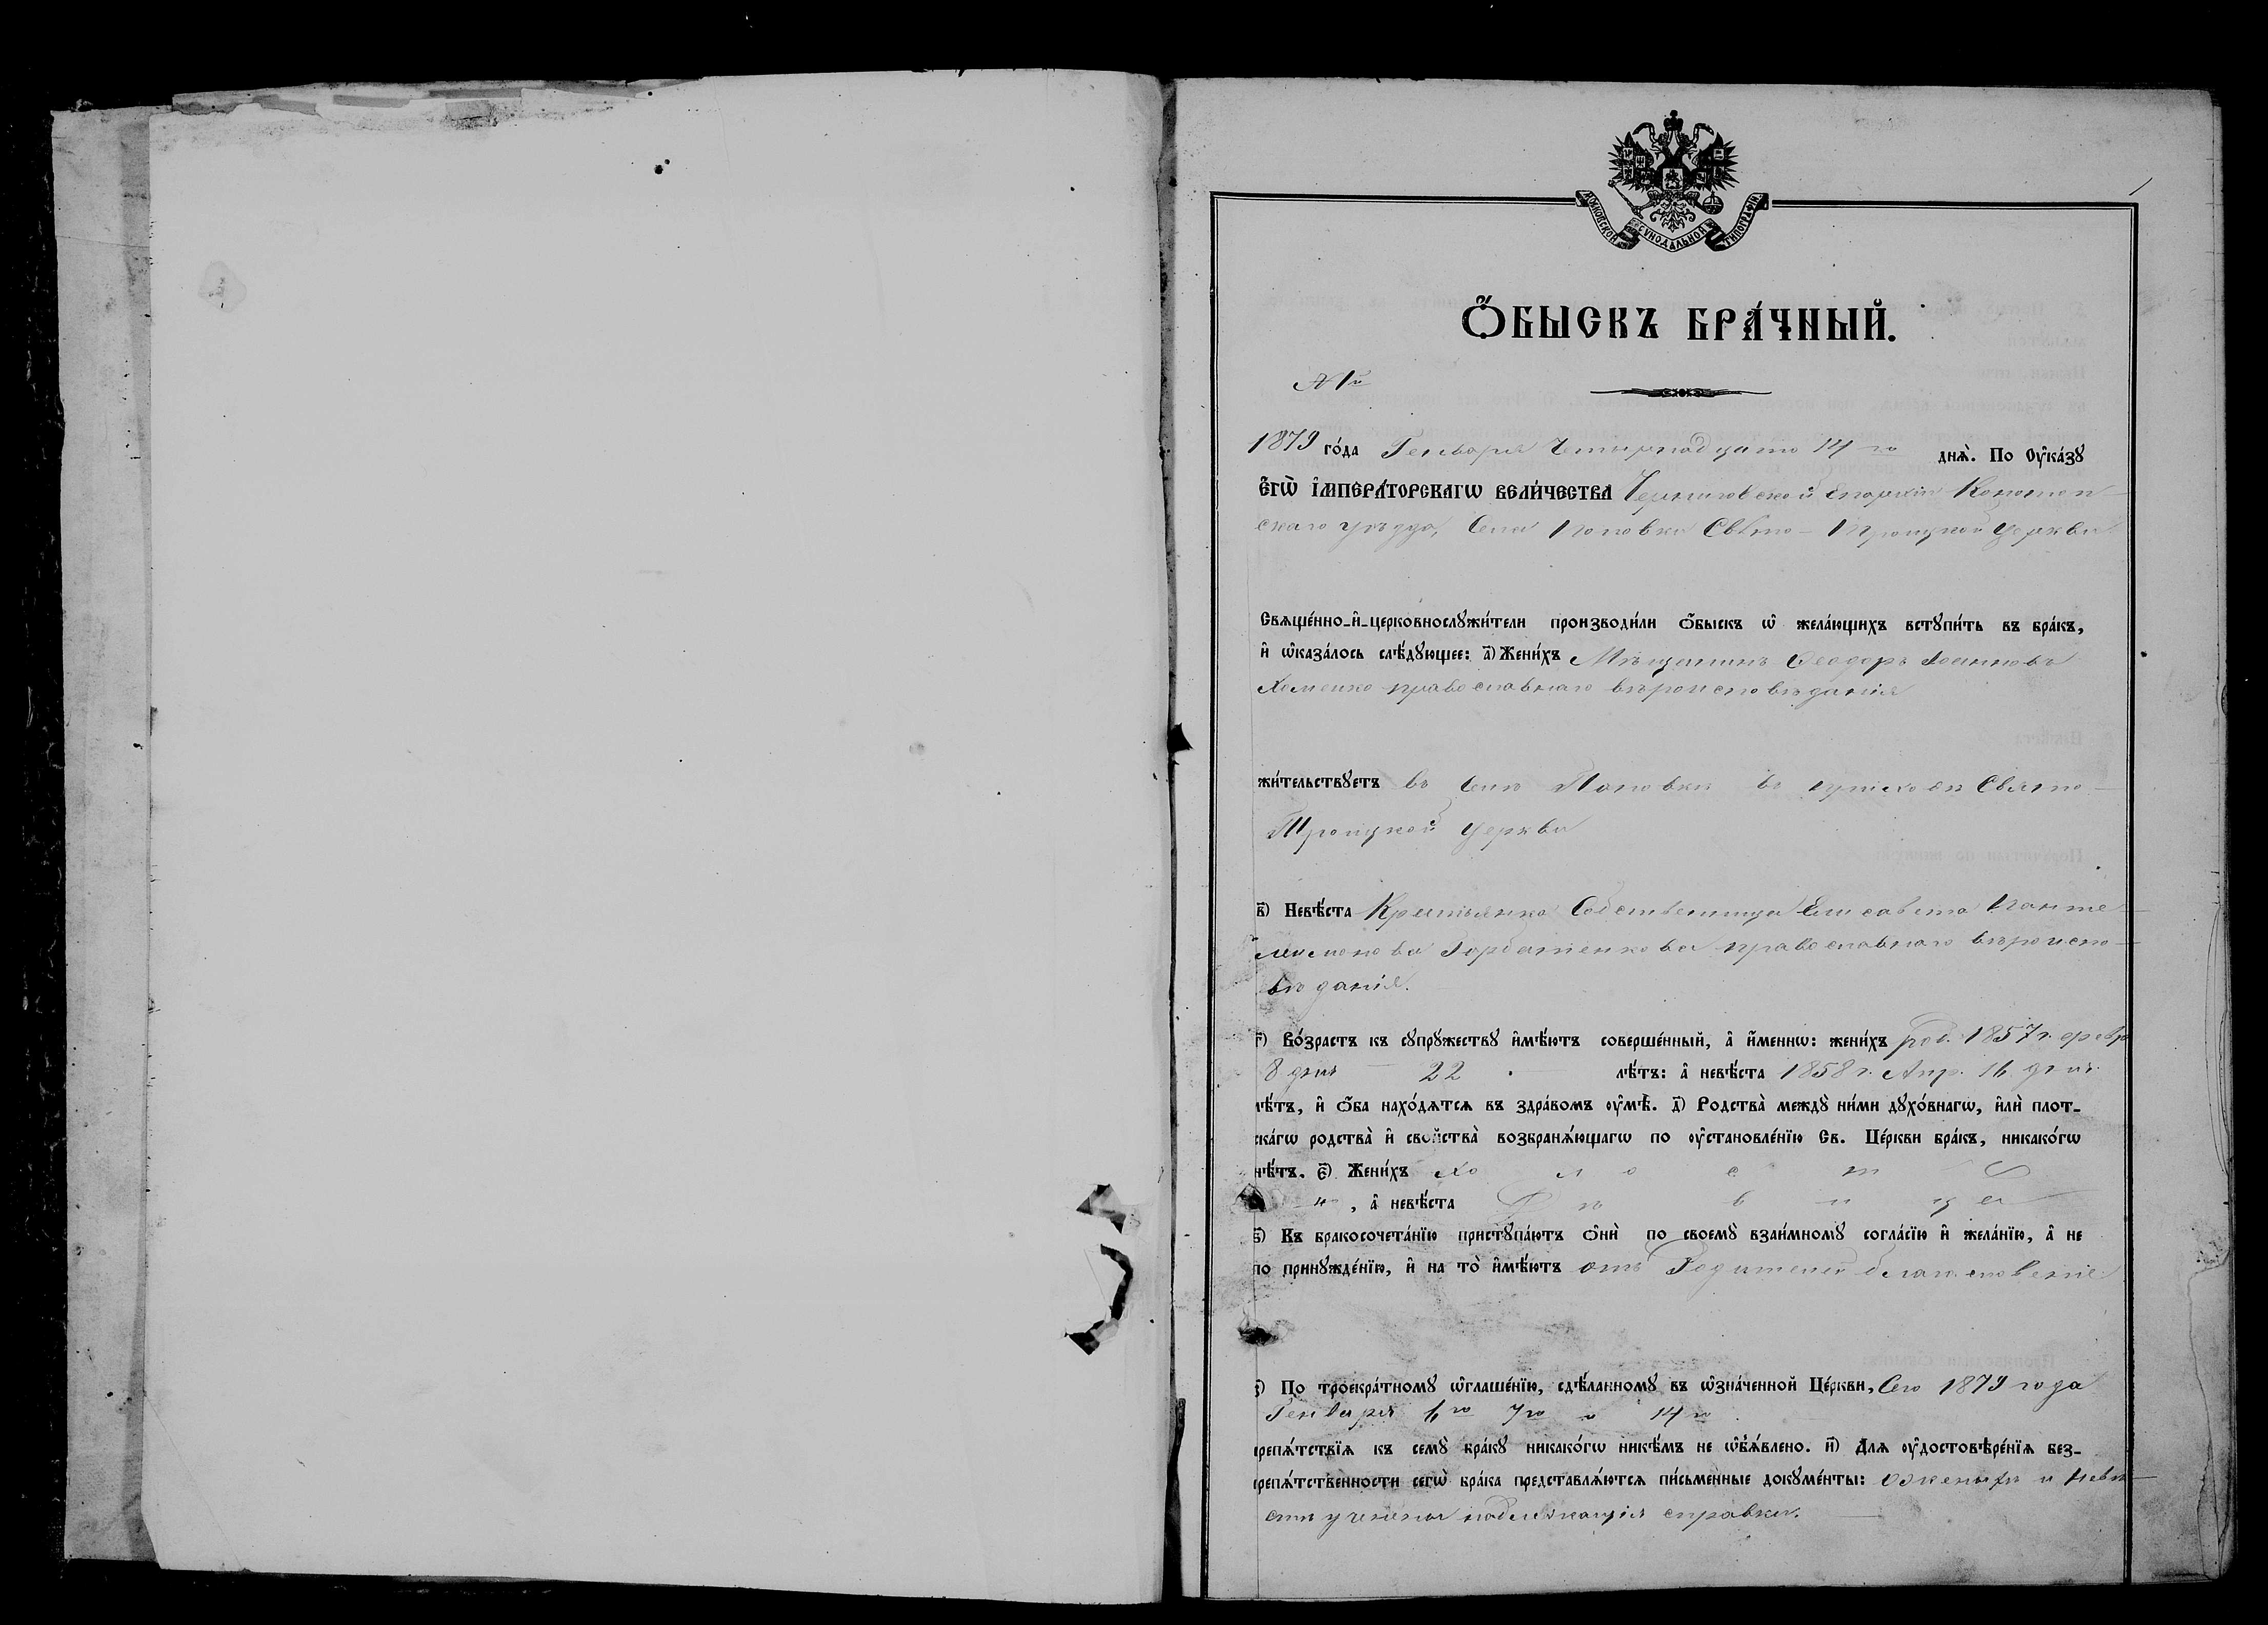 1
МОСКОВСКОЙ СѴНОДАЛЬНОЙ ТИПОГРАФІИ
Ѻ҆БЫСКЪ БРА́ЧНЫЙ.
№ 1й
1879 го́да Генваря Четырнадцато 14 го днѧ̀. По Оу҆ка́зꙋ
Є҆ГѠ̀ І҆МПЕРА́ТОРСКАГѠ ВЕЛИ́ЧЕСТВА Черниговской Епархіи Конотоп-
скаго уѣзда, Села Поповки Свято-Троицкой Церкви
Свѧще́нно-и҆-церковнослꙋжи́тели производи́ли ѻ҆́быскъ ѡ҆ жела́ющихъ встꙋпи́ть въ бра́къ,
и҆ ѡ҆каза́лось слѣ́дꙋющее: а҃) Жени́хъ Мѣщанинъ Ѳеодоръ Іоанновъ
Хоменко православнаго вѣроисповѣданія
жи́тельствꙋетъ въ Селѣ Поповки въ приходѣ Свято-
Троицкой Церкви
в҃) Невѣ́ста Крестьянка Собственница Елисавета Панте-
леимонова Горбатенкова православнаго вѣроиспо-
вѣданія.
г҃) Во́зрастъ къ сꙋпрꙋ́жествꙋ и҆мѣ́ютъ соверше́нный, а҆ и҆́меннѡ: жени́хъ род. 1857 г. февр
8 дня 22 лѣ́тъ: а҆ невѣ́ста 1858 г. Апр. 16 дня
лѣ́тъ, и҆ ѻ҆́ба нахо́дѧтсѧ въ здра́вомъ оу҆мѣ̀. д҃) Родства̀ междꙋ̀ ни́ми дꙋхо́внагѡ, и҆лѝ плот-
ска́гѡ родства̀ и҆ сво́йства̀ возбранѧ́ющагѡ по оу҆становле́нїю Св. Це́ркви бра́къ, никако́гѡ
нѣ́тъ. є҃) Жени́хъ Холостъ
, а҆ невѣ́ста Дѣвица
ѕ҃) Къ бракосочета́нїю пристꙋпа́ютъ ѻ҆нѝ по своемꙋ̀ взаи́мномꙋ согла́сїю и҆ жела́нїю, а҆ не
по принꙋжде́нїю, и҆ на то̀ и҆мѣ́ютъ отъ Родителей благословеніе
з҃) По троекра́тномꙋ ѡ҆глаше́нїю, сдѣ́ланномꙋ въ ѡ҆зна́ченной Це́ркви, Сего 1879 года
Генваря 6 го 7 го и 14 го
препѧ́тствїѧ къ семꙋ̀ бра́кꙋ никако́гѡ никѣ́мъ не ѡ҆б̾ѧ́влено. и҃) Длѧ оу҆достовѣре́нїѧ без-
препѧ́тственности сегѡ̀ бра́ка представлѧ́ютсѧ пи́сьменные докꙋме́нты: о женихѣ и невѣ-
стѣ учинены надлежащія справки.